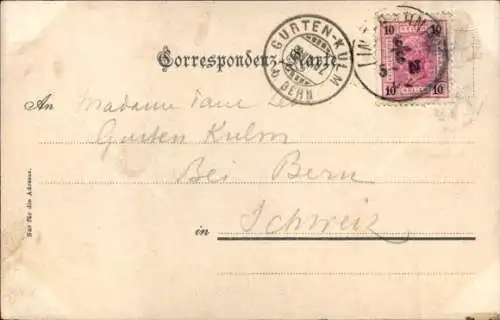 GURTEN-KULM
b. BERN
Correspondenz-Karte
10 10
10 10
An Madame
Gurten Kulm
Bei Bern
in Schweiz
Nur für die Adresse.